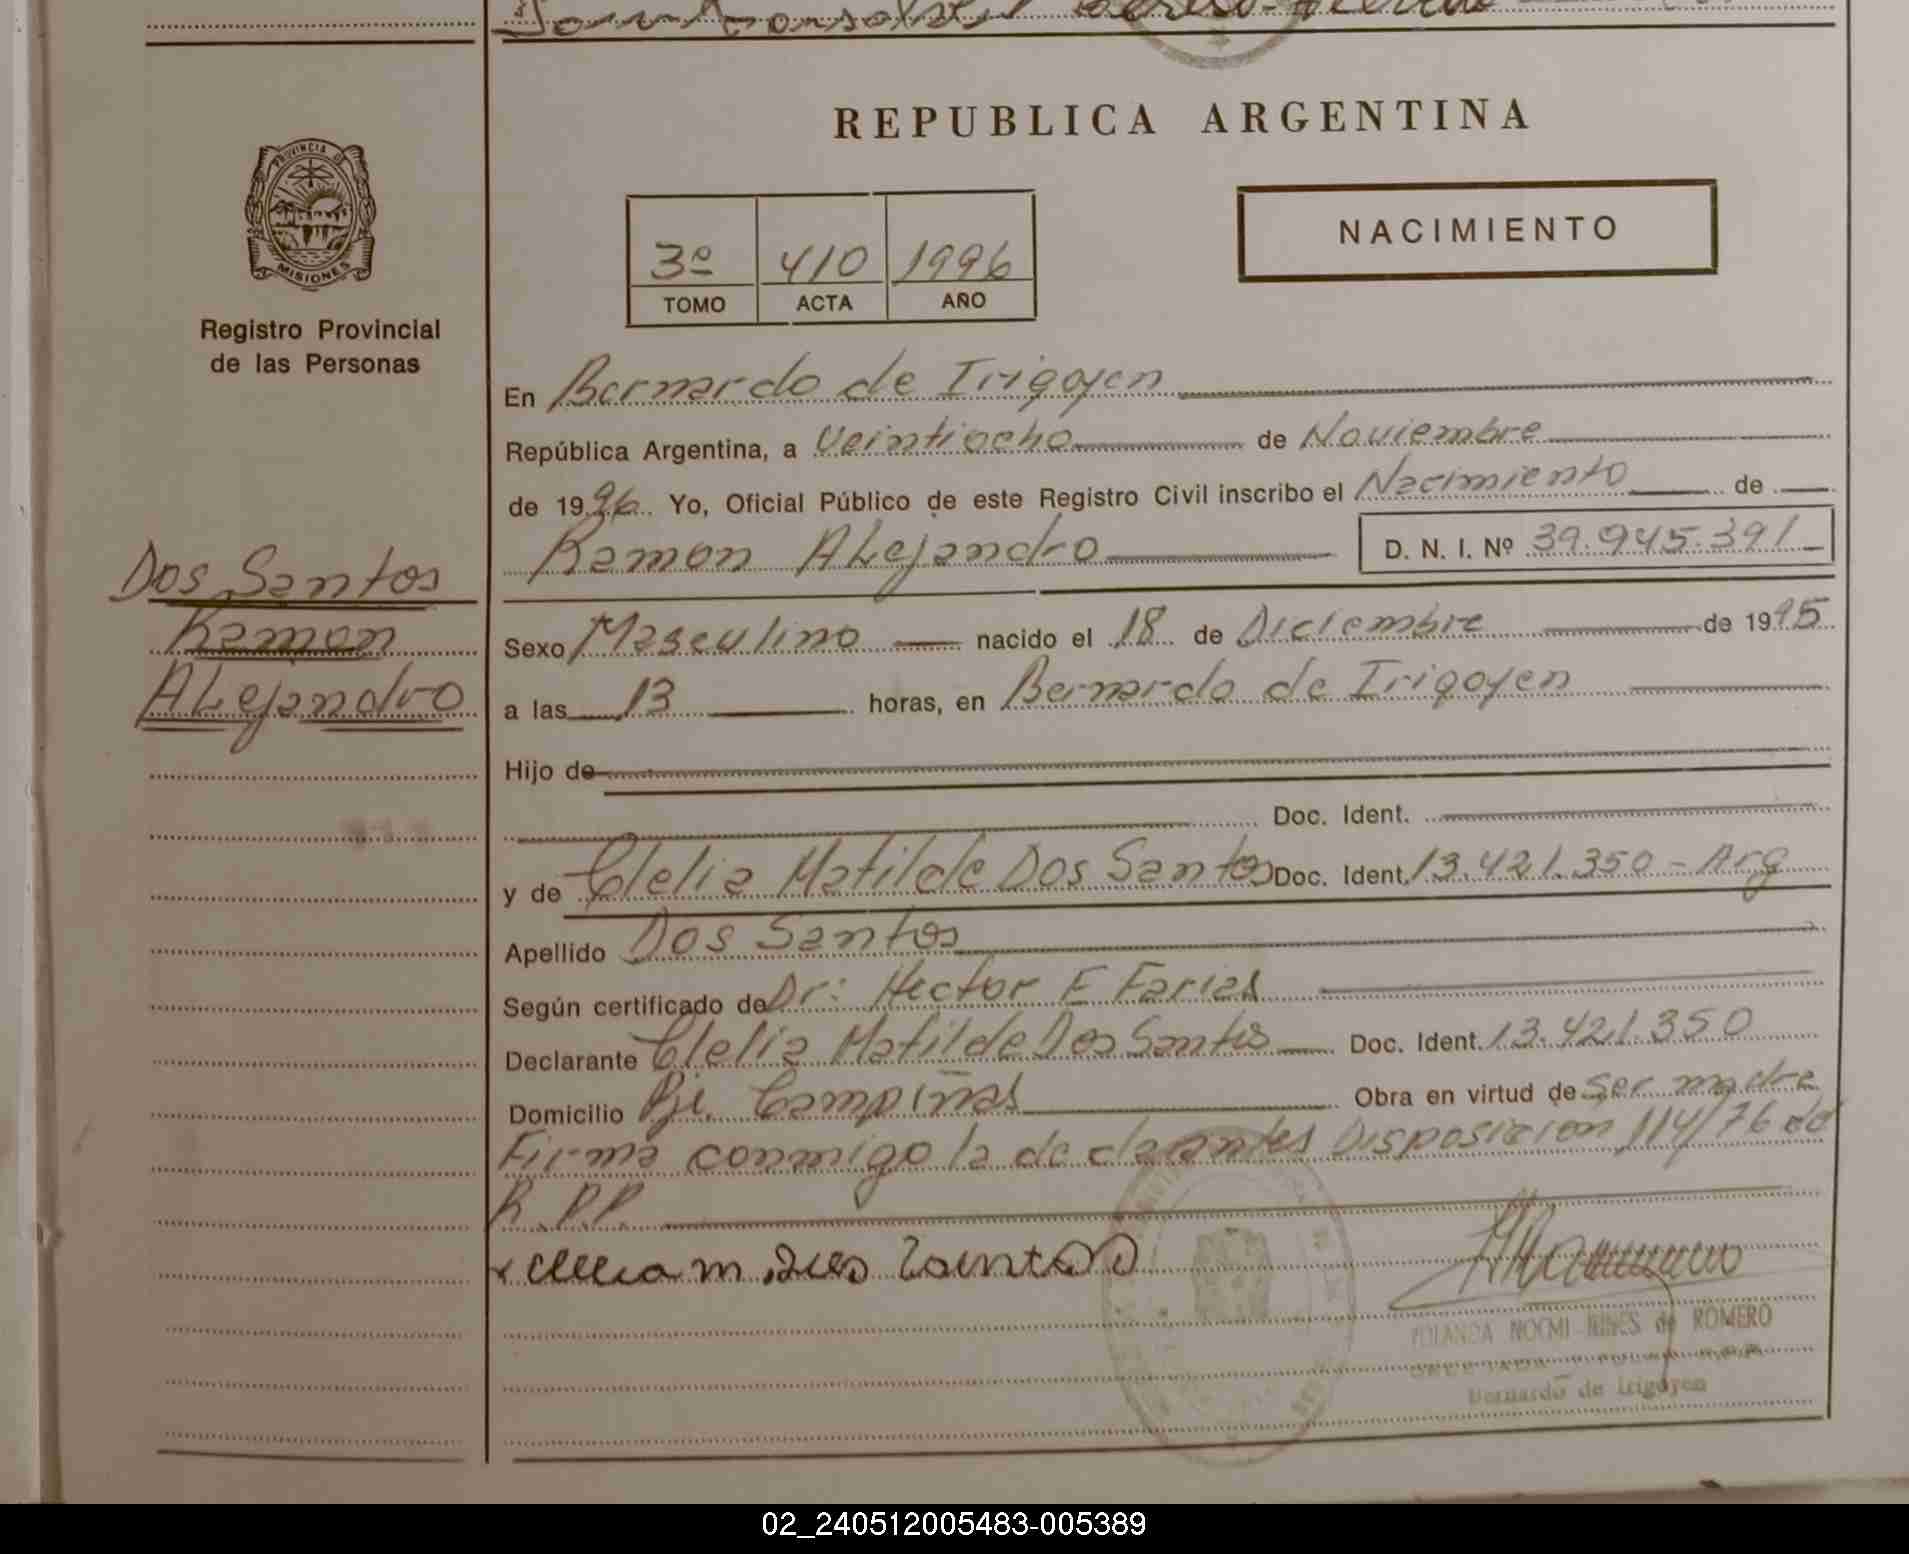 REPUBLICA ARGENTINA
PROVINCIA DE
MISIONES
Registro Provincial
de las Personas
3º 410 1996
TOMO ACTA AÑO
NACIMIENTO
En Bernardo de Irigoyen
República Argentina, a Veintiocho de Noviembre
de 1996 Yo, Oficial Público de este Registro Civil inscribo el Nacimiento de
Ramon Alejandro D. N. I. Nº 39.945.391
Dos Santos
Ramon
Alejandro
Sexo Masculino nacido el 18 de Diciembre de 1995
a las 13 horas, en Bernardo de Irigoyen
Hijo de
Doc. Ident.
y de Clelia Matilde Dos Santos Doc. Ident. 13.421.350 - Arg
Apellido Dos Santos
Según certificado de Dr: Hector E Farias
Declarante Clelia Matilde Dos Santos Doc. Ident. 13.421.350
Domicilio Pje. Campiñas Obra en virtud de ser madre
Firma conmigo la declarantes Disposicion 114/76 del
R.P.P.
Clelia m. Dos Santos
YOLANDA NOEMI NINES de ROMERO
Bernardo de Irigoyen
02_240512005483-005389